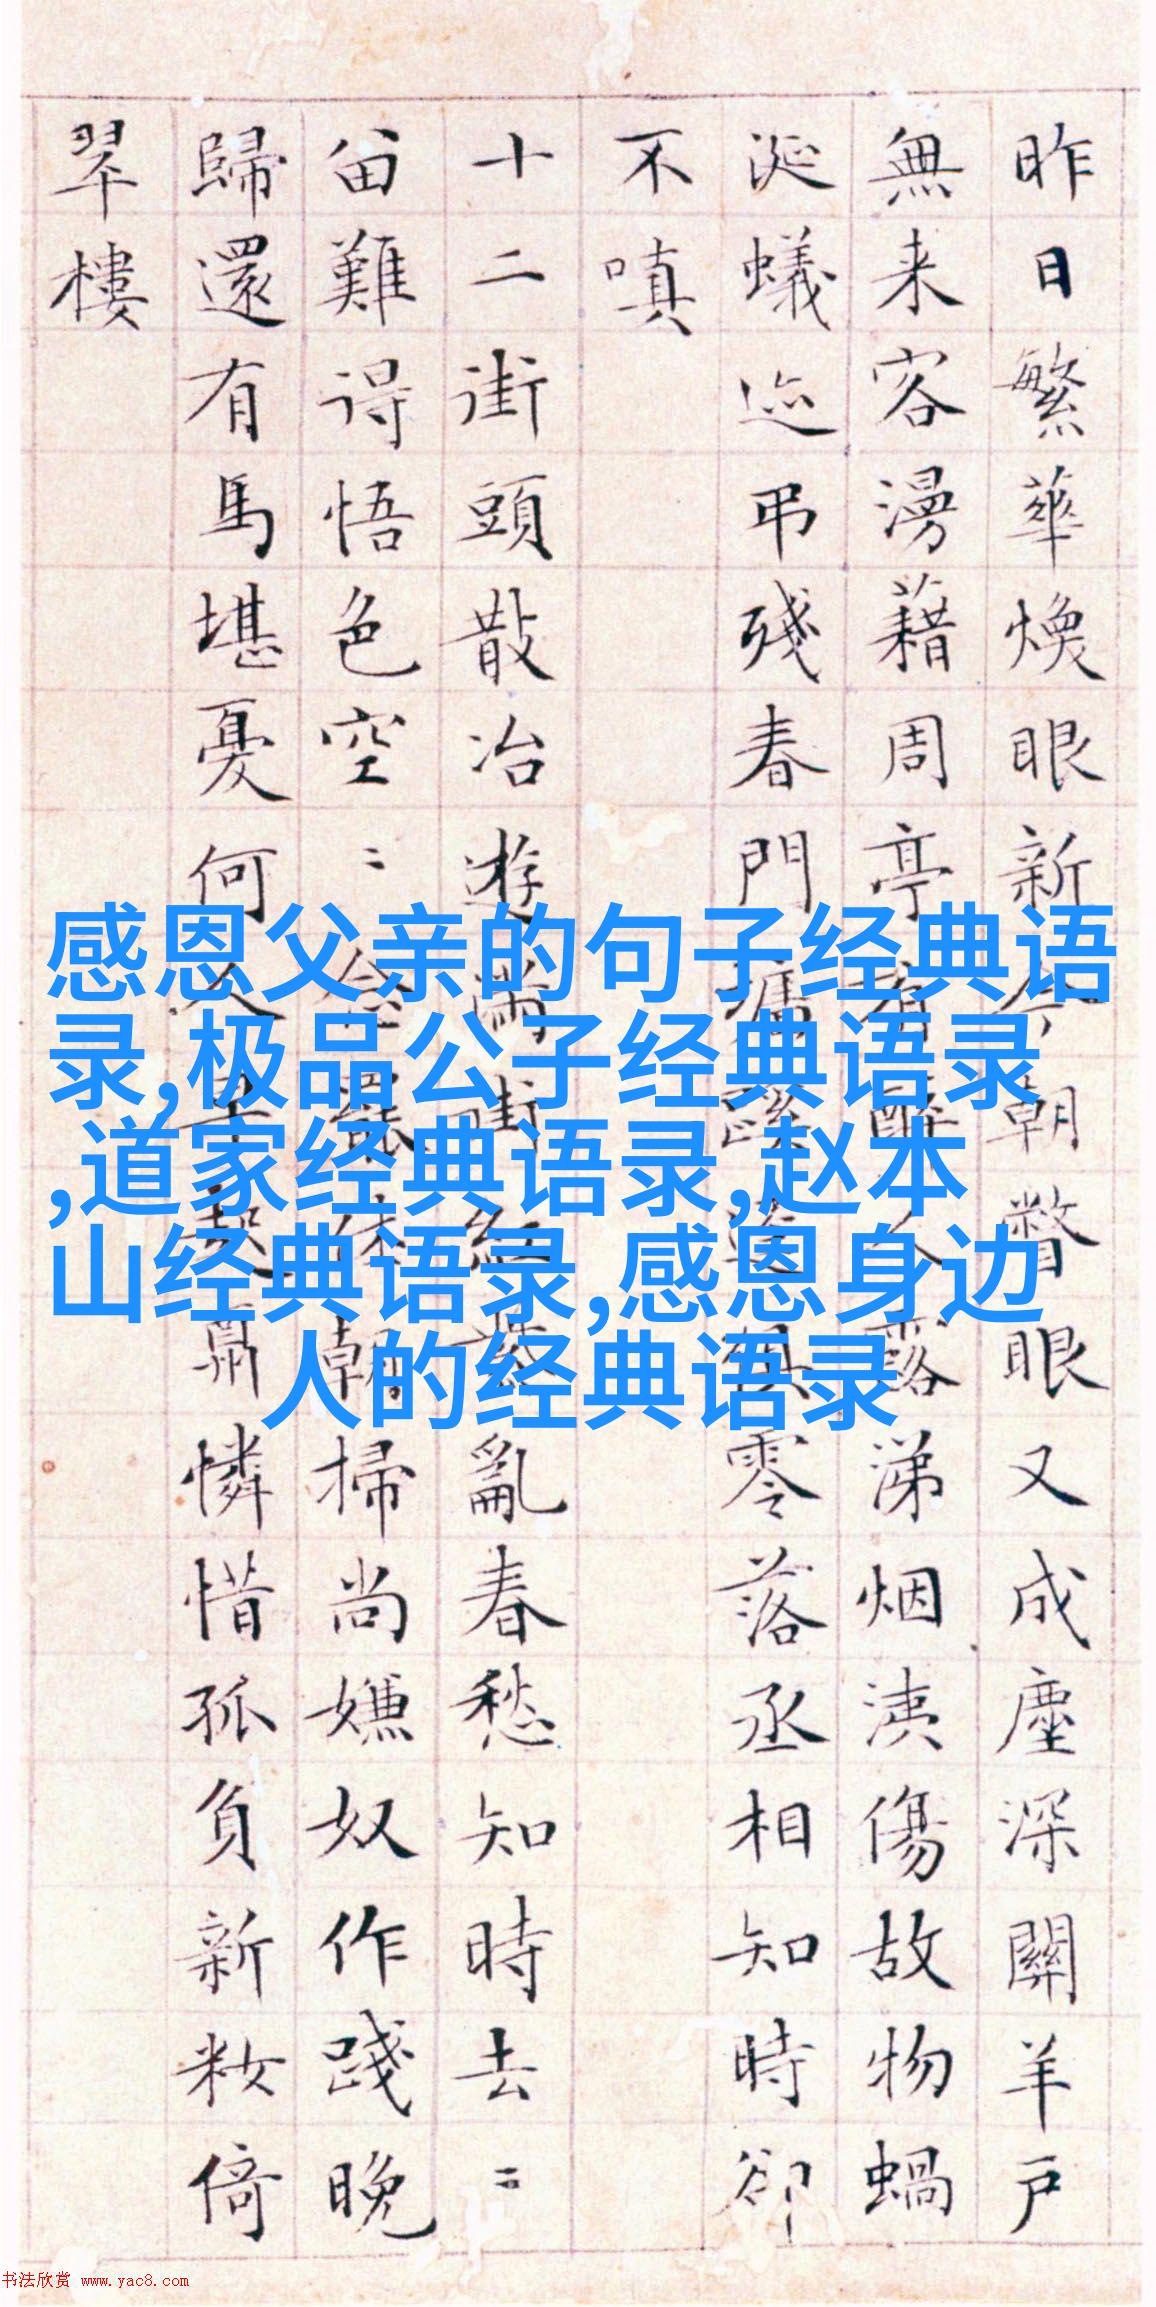 昨日繁華煥眼新今朝瞥眼又成塵深關羊戶
無来客漫藉周亭有醉人露涕烟洟傷故物蝸
涎蟻迹弔残春門蹊零落丞相知時卻
不嗔
十二街頭散冶遊滿街紅紫亂春愁知時去〻
畄難得悟色空〻念罷休朝掃尚嫌奴作踐晚
歸還有馬堪憂何人早起憐惜孤負新妝倚
翠樓
感恩父亲的句子经典语
录,极品公子经典语录
,道家经典语录,赵本
山经典语录,感恩身边
人的经典语录
书法欣赏 www.yac8.com